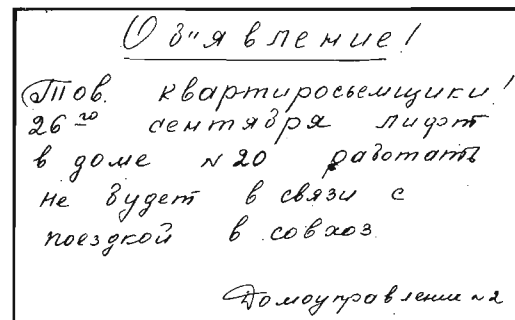 Об"явление!
Тов. квартиросьемщики!
26го сентября лифт
в доме №20 работать
не будет в связи с
поездкой в совхоз.
Домоуправление №2